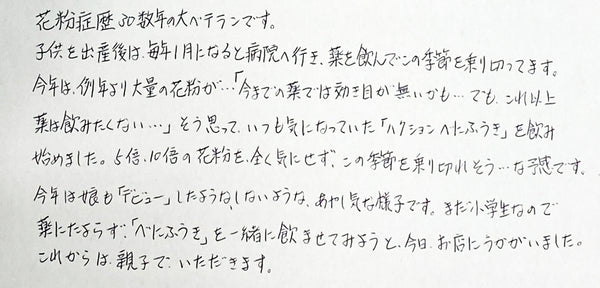 花粉症歴30数年の大ベテランです。
子供を出産後は、毎年1月になると病院へ行き、薬を飲んでこの季節を乗り切ってます。
今年は、例年より大量の花粉が…「今までの薬では効き目が無いかも…でも、これ以上
薬は飲みたくない…」そう思って、いつも気になっていた「ハクションべにふうき」を飲み
始めました。5倍、10倍の花粉を、全く気にせず、この季節を乗り切れそう…な予感です。
今年は娘も「デビュー」したような、しないような、あやし気な様子です。まだ小学生なので
薬にたよらず、「べにふうき」を一緒に飲ませてみようと、今日、お店にうかがいました。
これからは、親子で、いただきます。